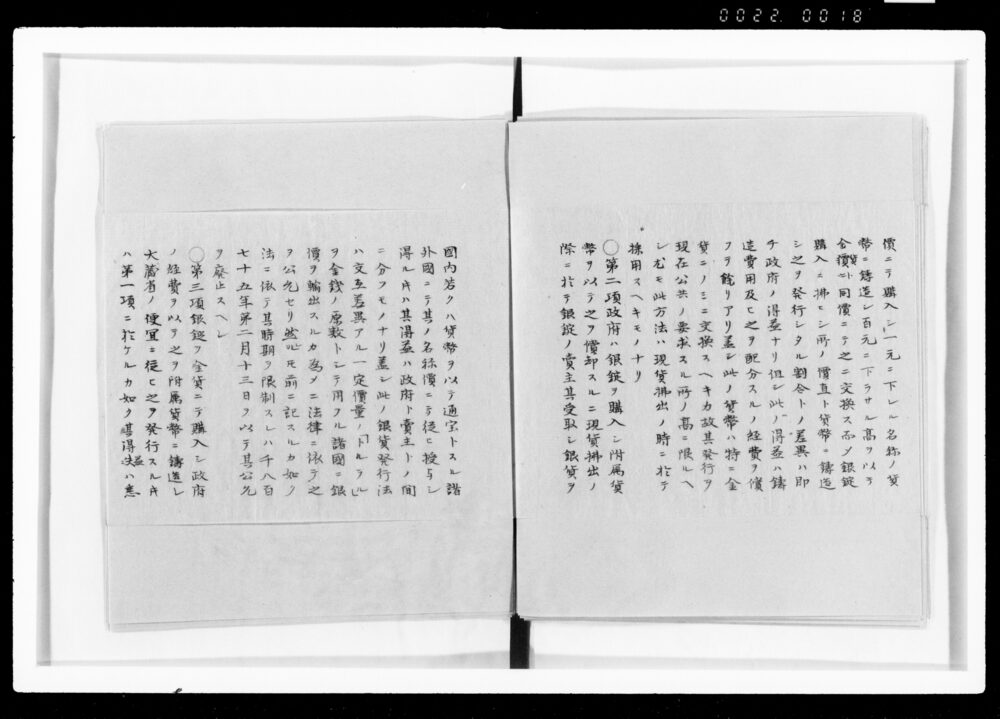 0022.0018
價ニテ購入シ一元ニ下レル名稱ノ貨
幣ニ鑄造シ百元ニ下ラサル高ヲ以テ
金貨ト同價ニテ之ニ交換ス而メ銀錠
購入ニ拂ヒシ所ノ價直ト貨幣ニ鑄造
シ之ヲ發行シタル割合トノ差異ハ即
チ政府ノ得益ナリ但シ此ノ得益ハ鑄
造費用及ヒ之ヲ配分スルノ經費ヲ償
フヲ餘リアリ蓋シ此ノ貨幣ハ特ニ金
貨ニノミニ交換スヘキカ故其發行ヲ
現在公共ノ要求スル所ノ高ニ限ルヘ
シ尤モ此方法ハ現貨拂出ノ時ニ於テ
採用スヘキモノナリ
〇第二項政府ハ銀錠ヲ購入シ附属貨
幣ヲ以テ之ヲ償却スルニ現貨拂出ノ
際ニ於テ銀錠ノ賣主其受取シ銀貨ヲ
國內若クハ貨幣ヲ以テ通宝トスル諸
外國ニテ其ノ名稱價ニテ従ヒ授与シ
得ルキハ其得益ハ政府ト賣主トノ間
ニ分フモノナリ蓋シ此ノ銀貨発行法
ハ交互差異アル一定價量ノ「ドルラル」
ヲ金錢ノ原数トシテ用フル諸國ニ銀
價ヲ輸出スルカ為メニ法律ニ依テ之
ヲ公允セリ然レ𪜈前ニ記スルカ如ク
法ニ依テ其時期ヲ限制スレハ千八百
七十五年第二月十三日ヲ以テ其公允
ヲ廃止スヘシ
〇第三項銀錠ヲ金貨ニテ購入シ政府
ノ經費ヲ以テ之ヲ附属貨幣ニ鑄造シ
大蔵省ノ便宜ニ従ヒ之ヲ発行スルキ
ハ第一項ニ於ケルカ如ク其得益失ハ悉